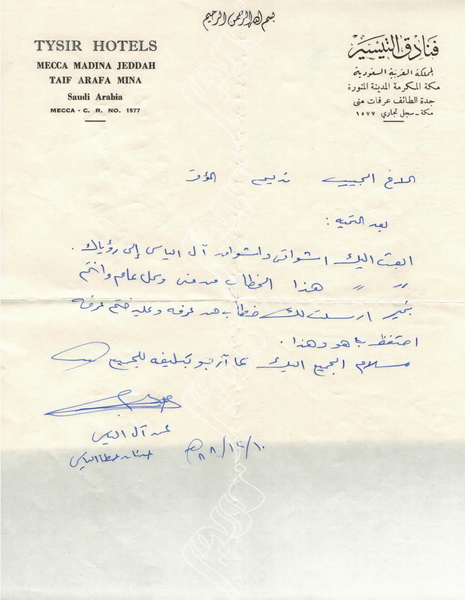 بسم الله الرحمن الرحيم
TYSIR HOTELS
MECCA MADINA JEDDAH
TAIF ARAFA MINA
Saudi Arabia
MECCA - C. R. NO. 1577
فنادق التيسير
المملكة العربية السعودية
مكة المكرمة المدينة المنورة
جدة الطائف عرفات منى
مكة - سجل تجاري ١٥٧٧
الاخ الحبيب نديم الموقر
بعد التحية :
ابعث اليك اشواقي واشواق آل الياس إلى رؤياك .
〃 〃 هذا الخطاب من منى وكل عام وانتم
بخير ارسلت لك خطاب من عرفه وعليه ختم عرفه
احتفظ به وهذا .
وسلام الجميع اليك كما أرجو تبليغه للجميع
عن آل الياس
عدنان عطا الياس
١٠/١٢/٨٨ هـ